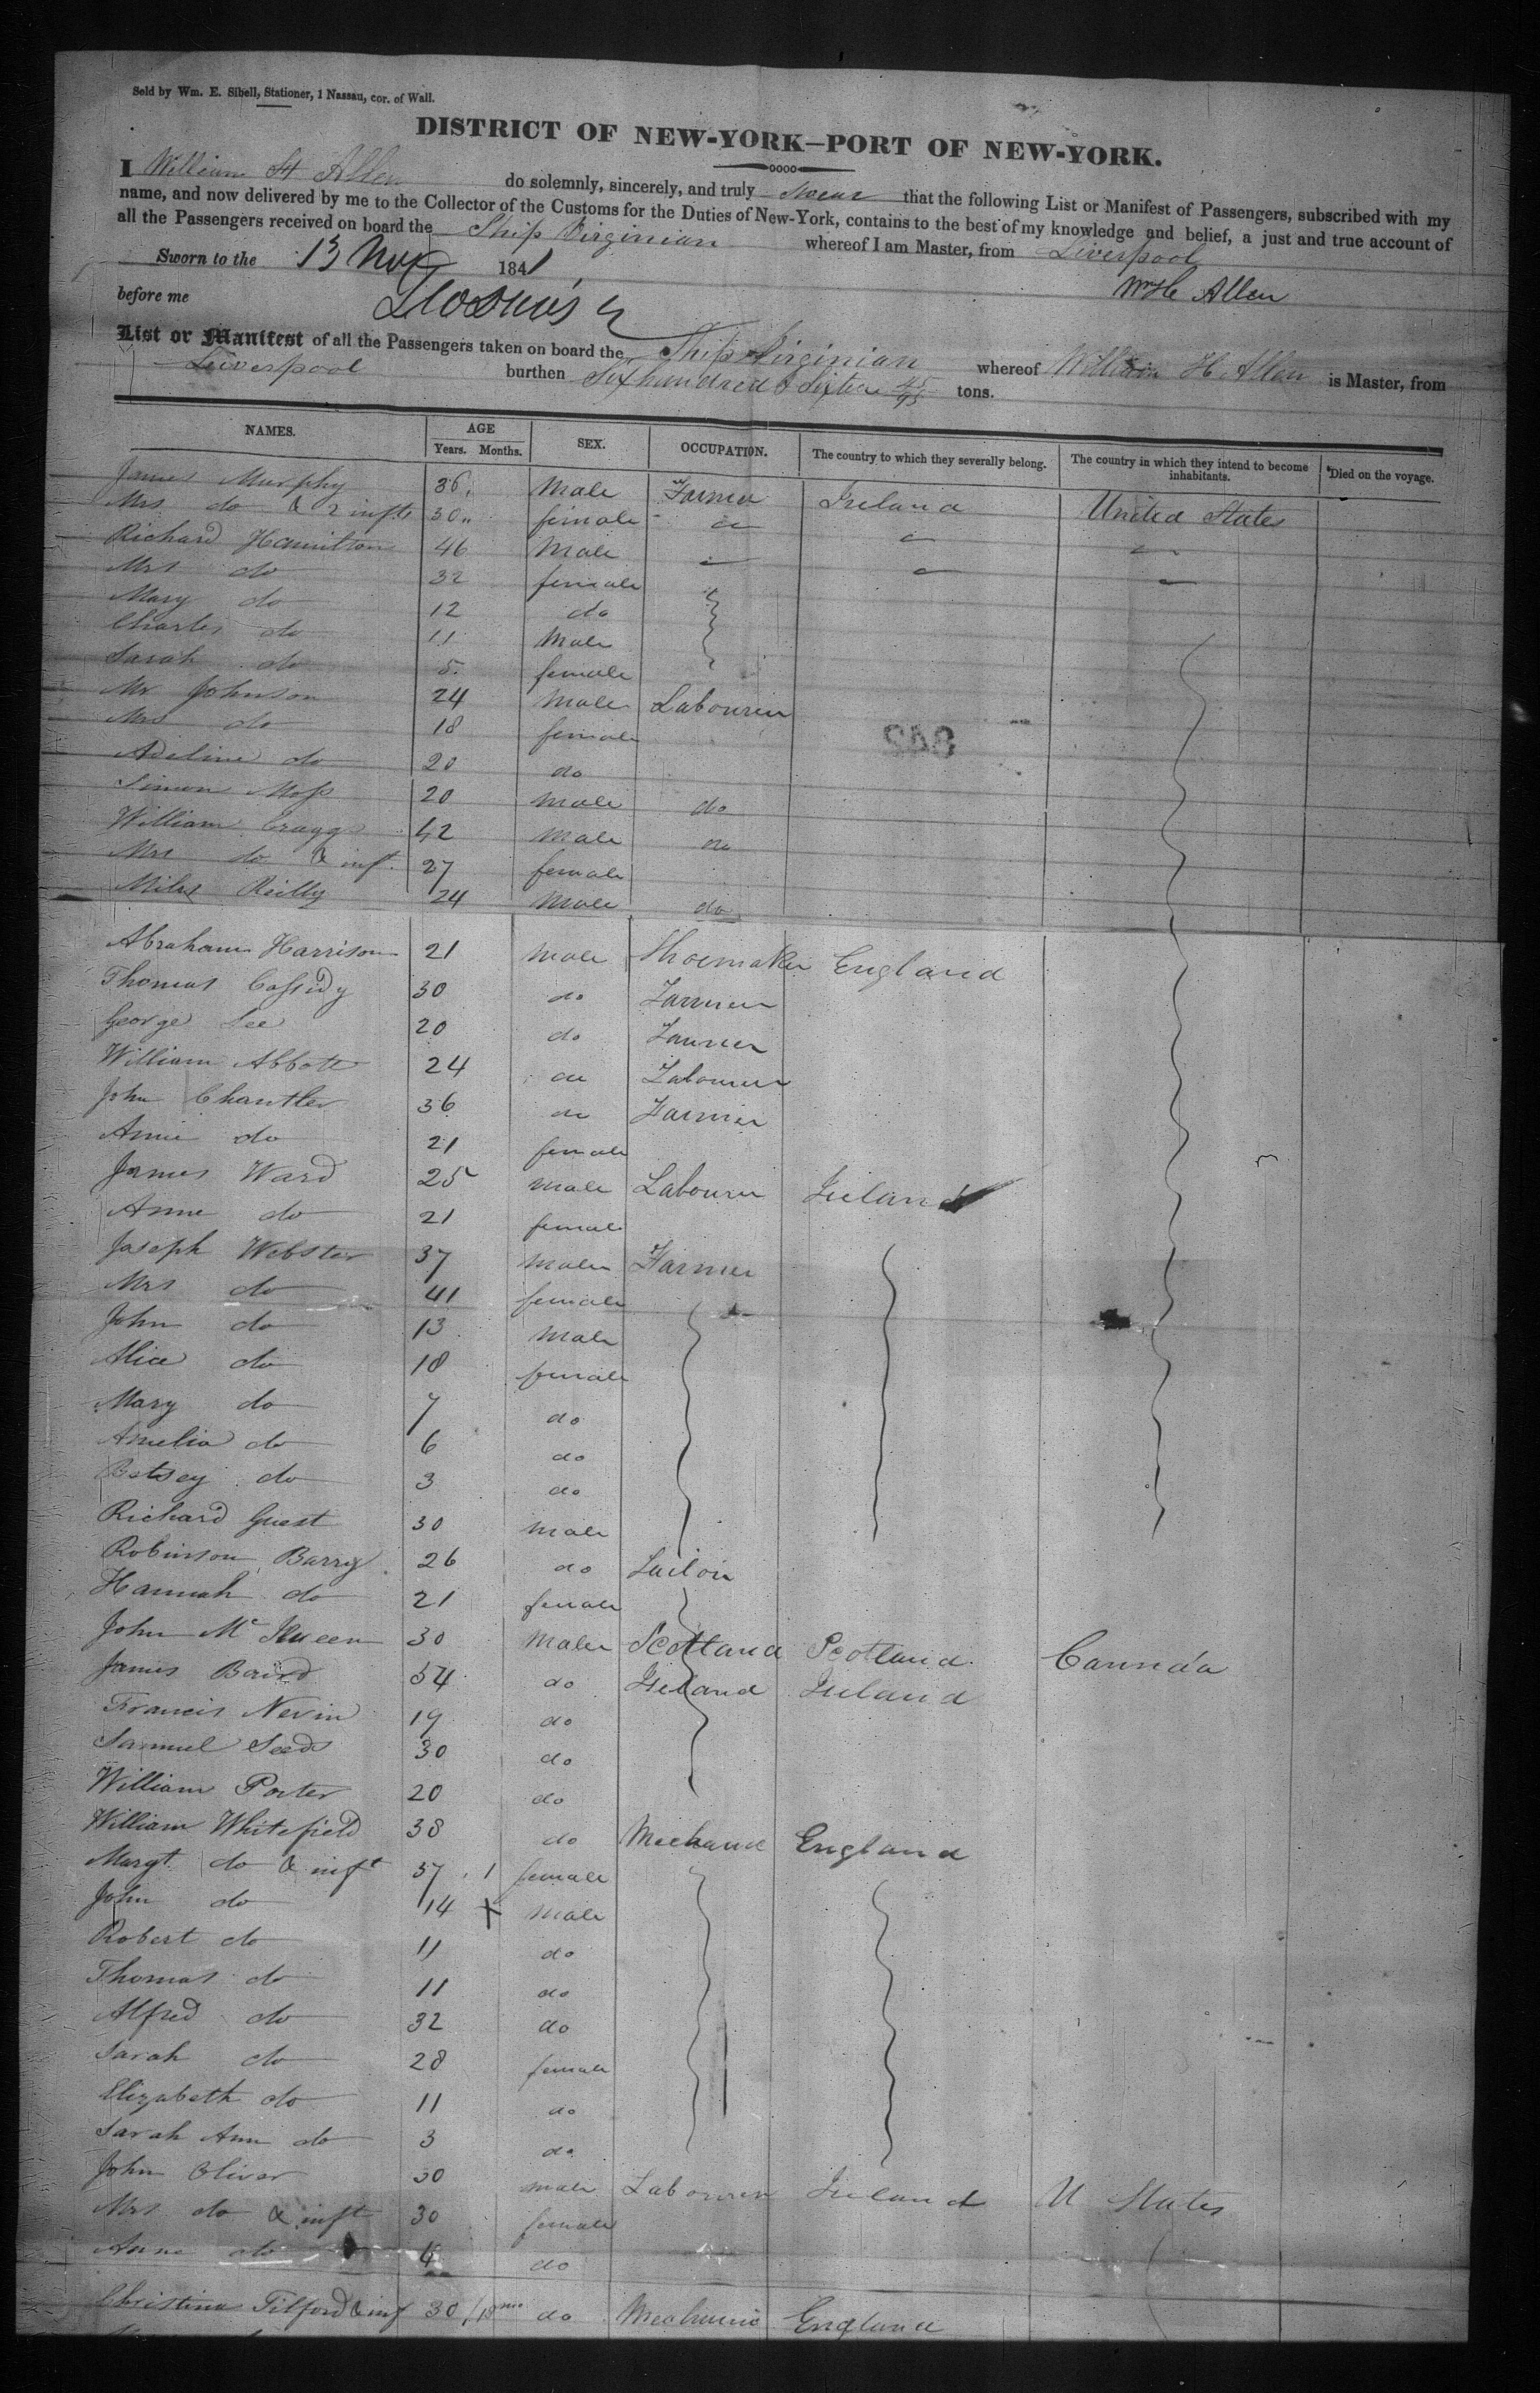 Sold by Wm. E. Sibell, Stationer, 1 Nassau, cor. of Wall.
DISTRICT OF NEW-YORK—PORT OF NEW-YORK.
I William H Allen do solemnly, sincerely, and truly swear that the following List or Manifest of Passengers, subscribed with my
name, and now delivered by me to the Collector of the Customs for the Duties of New-York, contains to the best of my knowledge and belief, a just and true account of
all the Passengers received on board the Ship Virginian whereof I am Master, from Liverpool
Sworn to the 13 Nov 1841
Wm H Allen
before me
List or Manifest of all the Passengers taken on board the Ship Virginian whereof William H. Allen is Master, from
Liverpool burthen Six hundred & Sixteen 45/95 tons.
NAMES. AGE SEX. OCCUPATION. The country to which they severally belong. The country in which they intend to become inhabitants. *Died on the voyage.
Years. Months.
James Murphy 36 Male Farmer Ireland United States
Mrs do & 2 infts 30 female do
Richard Hamilton 46 Male
Mrs do 32 female
Mary do 12 do
Charles do 11 Male
Sarah do 5 female
Mr Johnson 24 Male Labourer
Mrs do 18 female
842
Adeline do 20 do
Simon Moss 20 Male do
William Craggs 42 Male do
Mrs do & inft 27 female
Miles Reilly 24 Male do
Abraham Harrison 21 Male Shoemaker England
Thomas Cassidy 30 do Farmer
George Lee 20 do Farmer
William Abbott 24 do Labourer
John Chantler 36 do Farmer
Annie do 21 female
James Ward 25 Male Labourer Ireland
Anne do 21 female
Joseph Webster 37 Male Farmer
Mrs do 41 female
John do 13 Male
Alice do 10 female
Mary do 7 do
Amelia do 6 do
Betsey do 3 do
Richard Guest 30 Male
Robinson Barry 26 do Tailor
Hannah do 21 female
John Mc Queen 30 Male Scotland Scotland Cannda
James Baird 54 do Ireland Ireland
Francis Nevin 19 do
Samuel Seeds 30 do
William Porter 20 do
William Whitefield 38 do Mechanic England
Margt do & inft 37 1 female
John do 14 X Male
Robert do 11 do
Thomas do 11 do
Alfred do 32 do
Sarah do 28 female
Elizabeth do 11 do
Sarah Ann do 3 do
John Oliver 30 Male Labourer Ireland U States
Mrs do & inft 30 female
Anne do 4 do
Christina Tilford & inf 30 /10 mo do Mechanic England